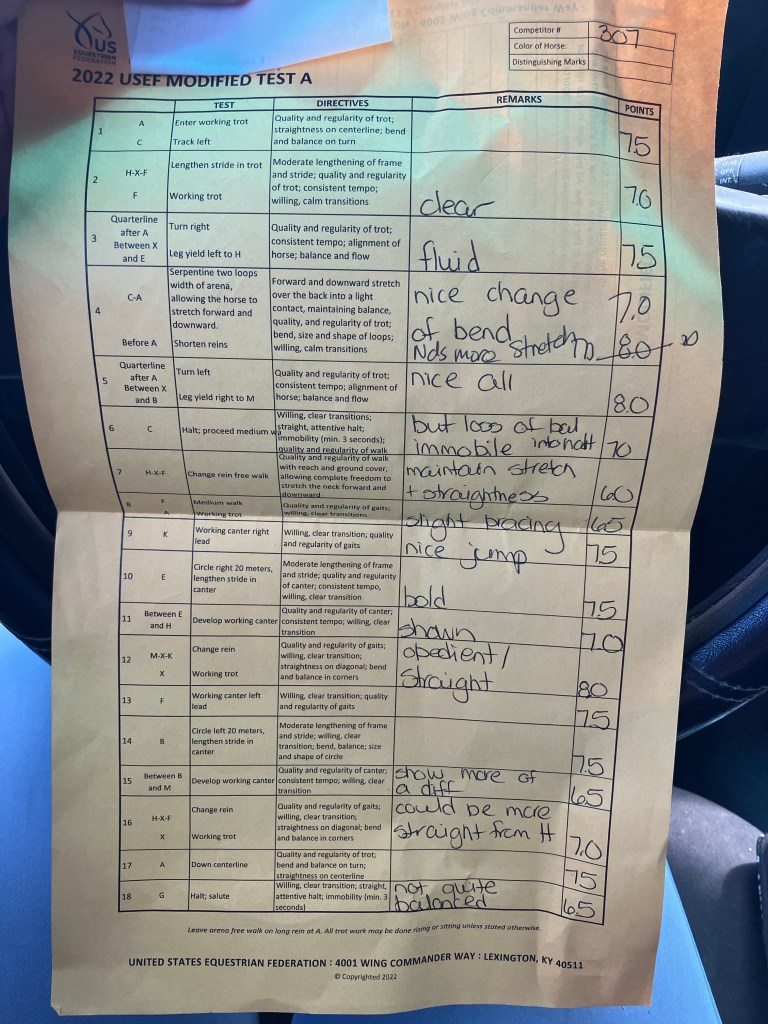 US
EQUESTRIAN
FEDERATION
Competitor # 307
Color of Horse:
Distinguishing Marks
2022 USEF MODIFIED TEST A
TEST DIRECTIVES REMARKS POINTS
1 A Enter working trot
C Track left
Quality and regularity of trot;
straightness on centerline; bend
and balance on turn
75
2 H-X-F Lengthen stride in trot
F Working trot
Moderate lengthening of frame
and stride; quality and regularity
of trot; consistent tempo;
willing, calm transitions
clear 7.0
3 Quarterline
after A
Between X
and E
Turn right
Leg yield left to H
Quality and regularity of trot;
consistent tempo; alignment of
horse; balance and flow
fluid 75
4 C-A
Before A
Serpentine two loops
width of arena,
allowing the horse to
stretch forward and
downward.
Shorten reins
Forward and downward stretch
over the back into a light
contact, maintaining balance,
quality, and regularity of trot;
bend, size and shape of loops;
willing, calm transitions
nice change 7.0
of bend
Nds more stretch 8.0
5 Quarterline
after A
Between X
and B
Turn left
Leg yield right to M
Quality and regularity of trot;
consistent tempo; alignment of
horse; balance and flow
nice all
8.0
6 C Halt; proceed medium wa
Willing, clear transitions;
straight, attentive halt;
immobility (min. 3 seconds);
quality and regularity of walk
but loss of bal
immobile into halt 70
7 H-X-F Change rein free walk
Quality and regularity of walk
with reach and ground cover,
allowing complete freedom to
stretch the neck forward and
downward
maintain stretch
+ straightness 60
8 F Medium walk
A Working trot
Quality and regularity of gaits;
willing, clear transitions
slight bracing 65
9 K Working canter right
lead
Willing, clear transition; quality
and regularity of gaits
nice jump 75
10 E Circle right 20 meters,
lengthen stride in
canter
Moderate lengthening of frame
and stride; quality and regularity
of canter; consistent tempo,
willing, clear transition
bold 75
11 Between E
and H
Develop working canter
Quality and regularity of canter;
consistent tempo; willing, clear
transition
shown 7.0
12 M-X-K Change rein
X Working trot
Quality and regularity of gaits;
willing, clear transition;
straightness on diagonal; bend
and balance in corners
obedient/
straight 80
13 F Working canter left
lead
Willing, clear transition; quality
and regularity of gaits
75
14 B Circle left 20 meters,
lengthen stride in
canter
Moderate lengthening of frame
and stride; willing, clear
transition; bend, balance; size
and shape of circle
7.5
15 Between B
and M
Develop working canter
Quality and regularity of canter;
consistent tempo; willing, clear
transition
show more of
a diff 65
16 H-X-F Change rein
X Working trot
Quality and regularity of gaits;
willing, clear transition;
straightness on diagonal; bend
and balance in corners
could be more
straight from H 7.0
17 A Down centerline
Quality and regularity of trot;
bend and balance on turn;
straightness on centerline
75
18 G Halt; salute
Willing, clear transition; straight,
attentive halt; immobility (min. 3
seconds)
not quite
balanced 65
Leave arena free walk on long rein at A. All trot work may be done rising or sitting unless stated otherwise.
UNITED STATES EQUESTRIAN FEDERATION : 4001 WING COMMANDER WAY : LEXINGTON, KY 40511
© Copyrighted 2022